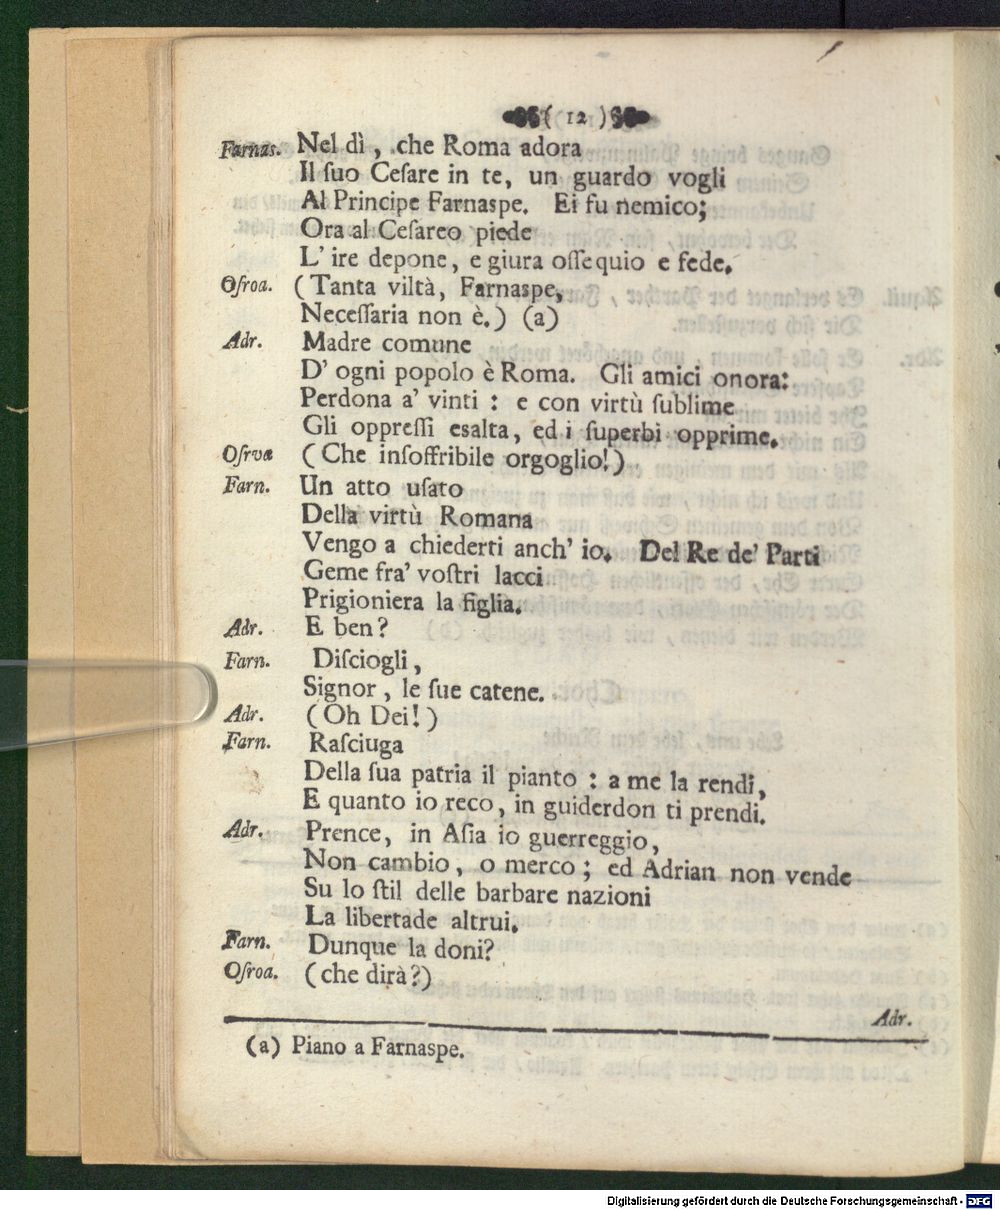 ( 12 )
Farnas. Nel dì, che Roma adora
Il ſuo Ceſare in te, un guardo vogli
Al Principe Farnaspe. Ei fu nemico;
Ora al Ceſareo piede
L' ire depone, e giura oſſequio e fede.
Oſroa. (Tanta viltà, Farnaspe,
Neceſſaria non è.) (a)
Adr. Madre comune
D' ogni popolo è Roma. Gli amici onora:
Perdona a' vinti: e con virtù ſublime
Gli oppreſſi esalta, ed i ſuperbi opprime.
Oſrva (Che inſoffribile orgoglio!)
Farn. Un atto uſato
Della virtù Romana
Vengo a chiederti anch' io. Del Re de' Parti
Geme fra' voſtri lacci
Prigioniera la figlia.
Adr. E ben?
Farn. Diſciogli,
Signor, le ſue catene.
Adr. (Oh Dei!)
Farn. Raſciuga
Della ſua patria il pianto: a me la rendi,
E quanto io reco, in guiderdon ti prendi.
Adr. Prence, in Aſia io guerreggio,
Non cambio, o merco; ed Adrian non vende
Su lo ſtil delle barbare nazioni
La libertade altrui.
Farn. Dunque la doni?
Oſroa. (che dirà?)
Adr.
(a) Piano a Farnaspe.
Digitalisierung gefördert durch die Deutsche Forschungsgemeinschaft - DFG